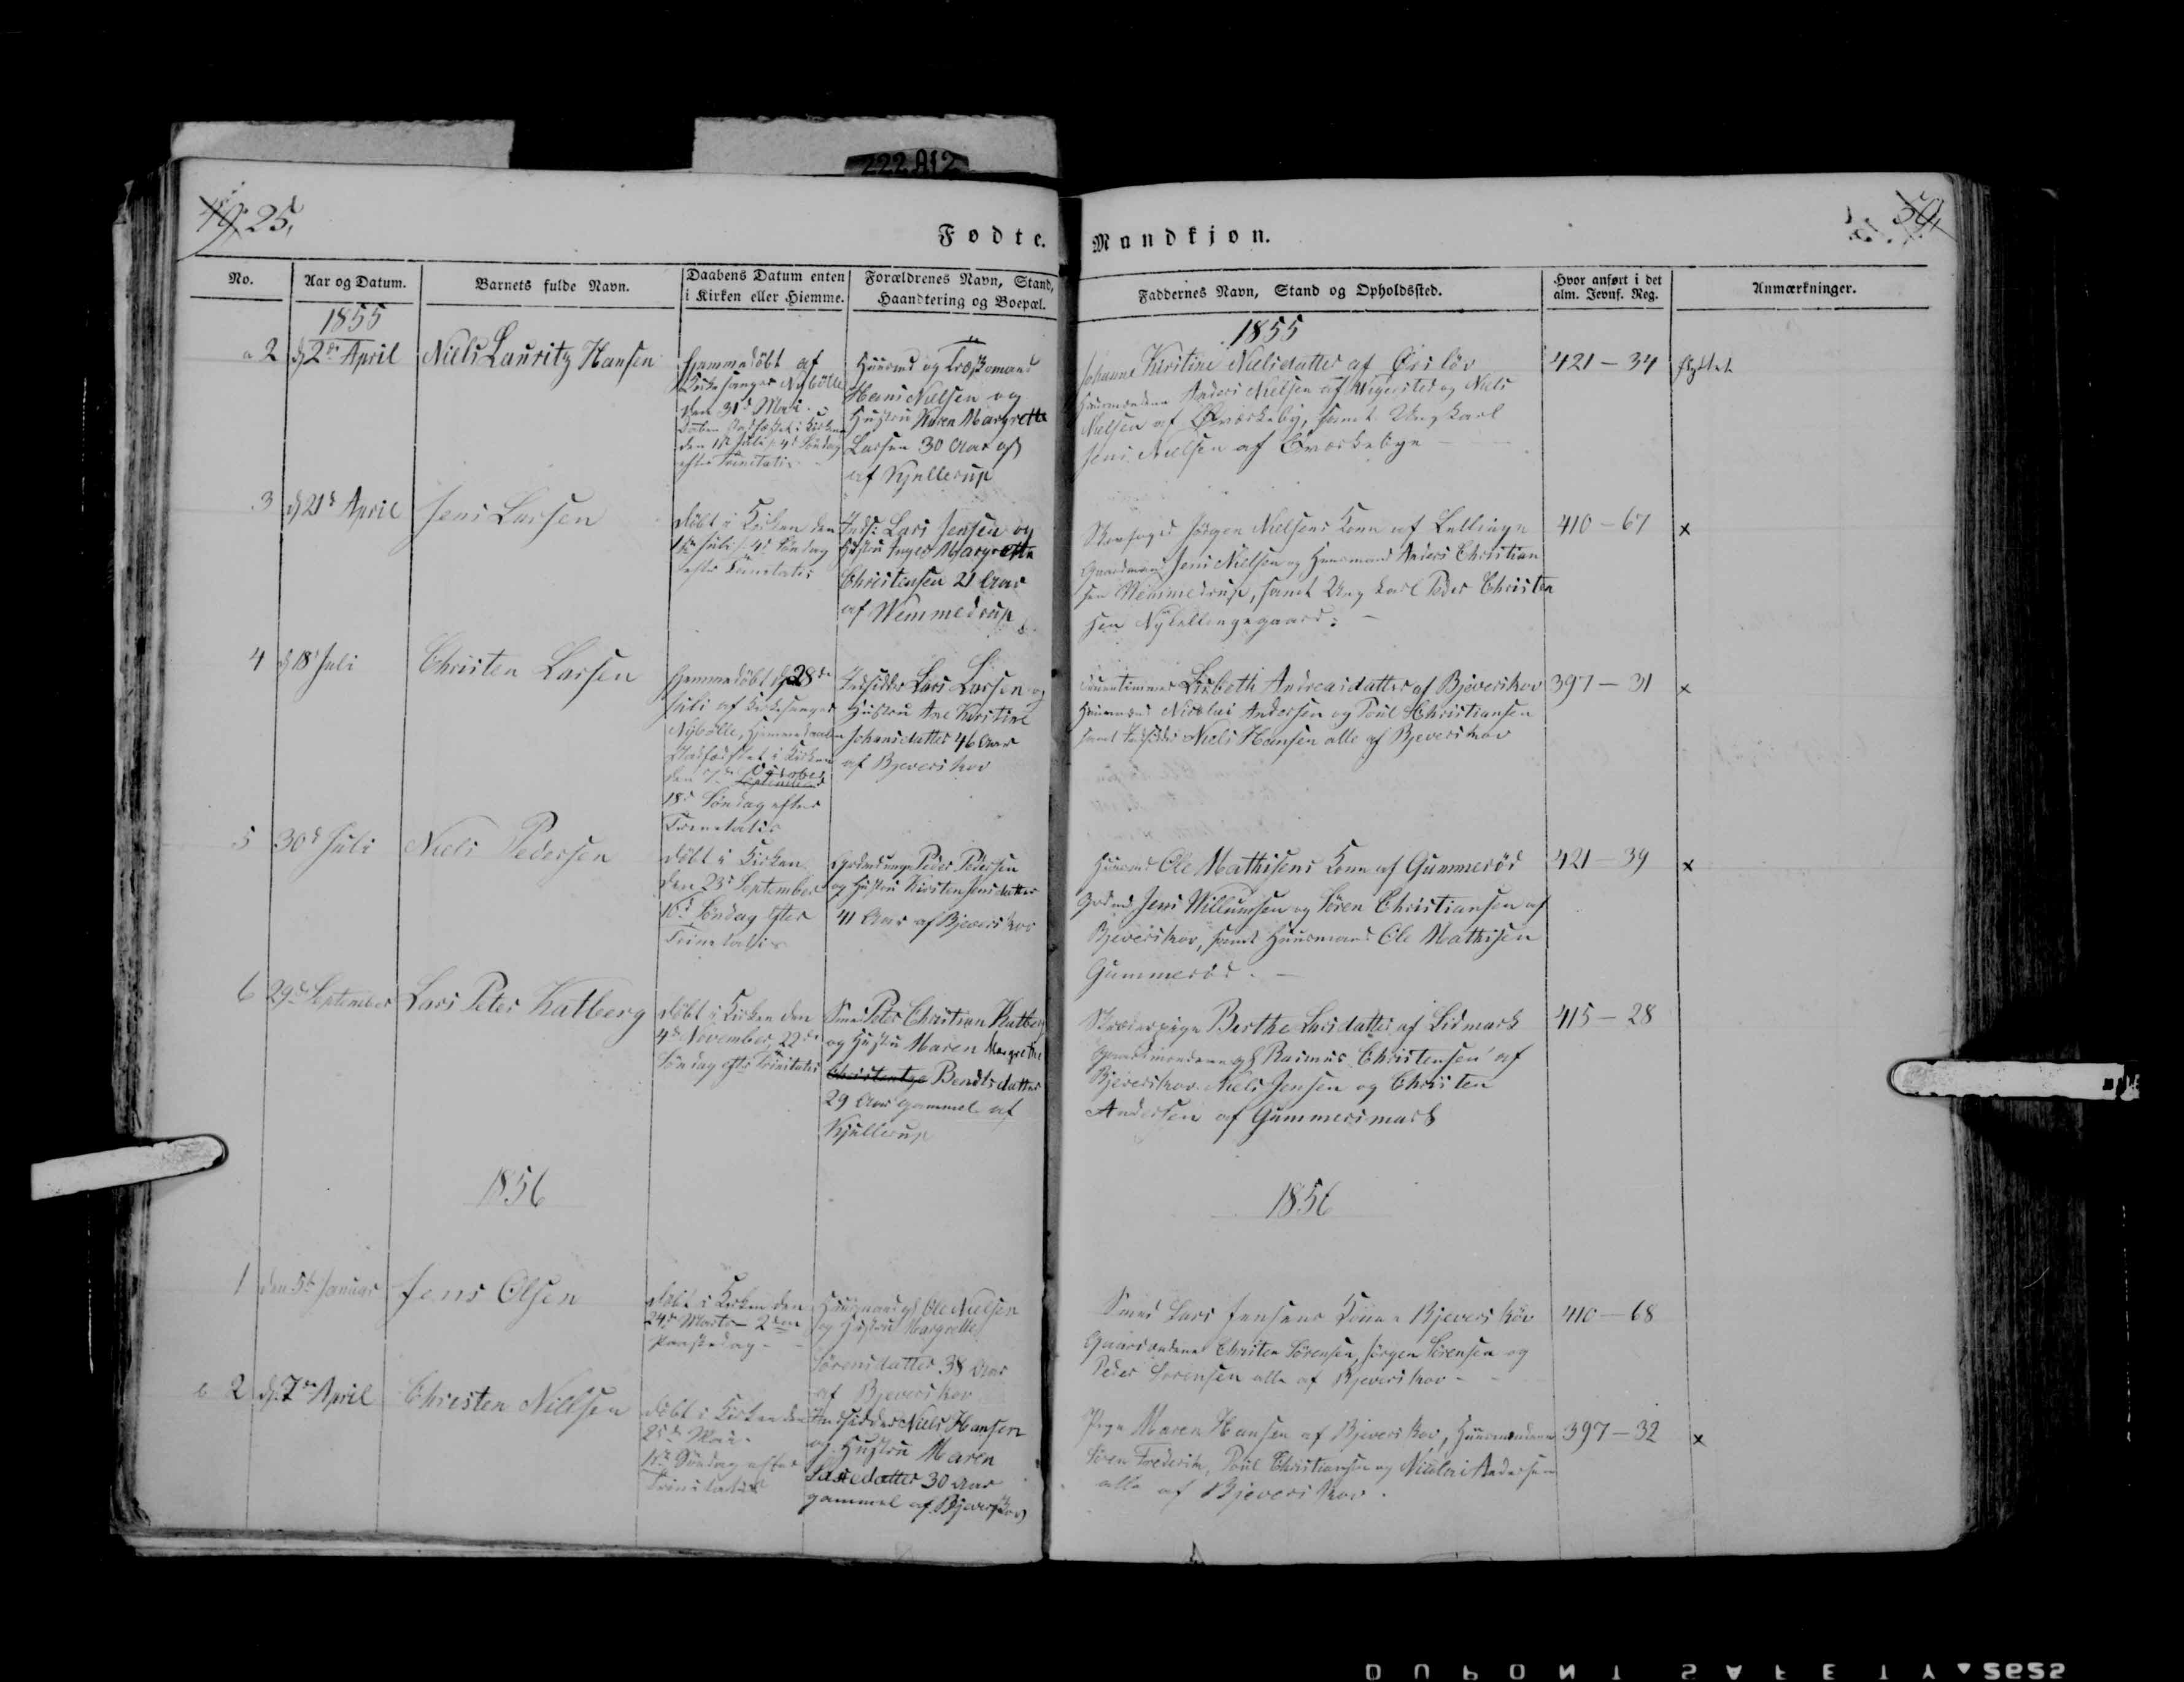 222 A12
49. 25.
Fodte.
Mandkjon.
50.
No.
Aar og Datum.
Barnets fulde Navn.
Daabens Datum enten
i Kirken eller Hiemme.
Forældrenes Navn, Stand,
Haandtering og Boepæl.
Faddernes Navn, Stand og Opholdssted.
Hvor anført i det
alm. Jevnf. Reg.
Anmærkninger.
1855
1855
a 2
d. 2den April
Niels Lauritz Hansen
Hjemmedöbt af
Kirkesanger Nybölle
den 31te Mai.
Daaben stadfæstet i Kirken
den 1ste Juli, 4de Söndag
efter Trinitatis
Huusmand og
Hans Nielsen og
Hustru Karen Margrethe
Larsen 30 Aar
af Kjullerup
Johanne Kirstine Nielsdatter af Örslöv
Huusmændene Anders Nielsen af Wigersted og Niels
Nielsen af Öværkeby, samt Ungkarl
Jens Nielsen af
421 - 34
flyttet
3
d. 21de April
Jens Larsen
döbt i Kirken den
1ste Juli, 4de Söndag
efter Trinitatis
Inds: Lars Jensen og
Hustru Inger Margrethe
Christensen 21 Aar
af Wemmedrup
Skovfoged Jörgen Nielsens Kone af Lellinge
Gaardmand Jens Nielsen og Huusmand Anders Christian
sen Wemmedrup, samt Ungkarl Peder Christen
sen Nylellingegaard.
410 - 67
x
4
d. 18de Juli
Christen Larsen
Hjemmedöbt d. 28de
Juli af Kirkesanger
Nybölle, Hjemmedaaben
Stadfæstet i Kirken
den 7de October
18de Söndag efter
Trinitatis
Indsidder Lars Larsen og
Hustru Ane Kirstine
Johansdatter 46 Aar
af Bjeverskov
Lisbeth Andreasdatter af Bjeverskov
Huusmænd Nicolai Andersen og Poul Christiansen
samt Indsidder Niels Hansen alle af Bjeverskov
397 - 31
x
5
30te Juli
Niels Pedersen
döbt i Kirken
den 23de September
16de Söndag efter
Trinitatis
Peder Pedersen
og Hustru Kirsten Jensdatter
41 Aar af Bjeverskov
Huusmd Ole Mathisens Kone af Gummeröd
Grdmd Jens Willumsen og Sören Christiansen af
Bjeverskov, samt Huusmand Ole Mathisen
Gummeröd.
421 - 39
x
6
29de September
Lars Peter Katberg
döbt i Kirken den
4de November, 22de
Söndag efter Trinitatis
Smed Peter Christian Katberg
og Hustru Maren Margrethe
Bendtsdatter
29 Aar gammel af
Kjullerup
Berthe Larsdatter af Lidmark
Gaardmændene Rasmus Christensen af
Bjeverskov Niels Jensen og Christen
Andersen af Gummersmark
415 - 28
1856
1856
1
den 5te Januar
Jens Olsen
döbt i Kirken den
24de Marts - 2den
Paaskedag -
Huusmand Ole Nielsen
og Hustru Margrethe
Sörensdatter 38 Aar
af Bjeverskov
Smed Lars Jensens Kone Bjeverskov
Gaardmændene Christen Sörensen, Jörgen Sörensen og
Peder Sörensen alle af Bjeverskov -
410 - 68
b 2
d. 7de April
Christen Nielsen
döbt i Kirken den
25de Mai.
1ste Söndag efter
Trinitatis
Indsidder Niels Hansen
og Hustru Maren
30 Aar
gammel af Bjeverskov
Pige Maren Hansen af Bjeverskov, Huusmændene
Sören Frederik, Poul Christiansen og Nicolai Andersen
alle af Bjeverskov.
397 - 32
x
DUPONT SAFETY